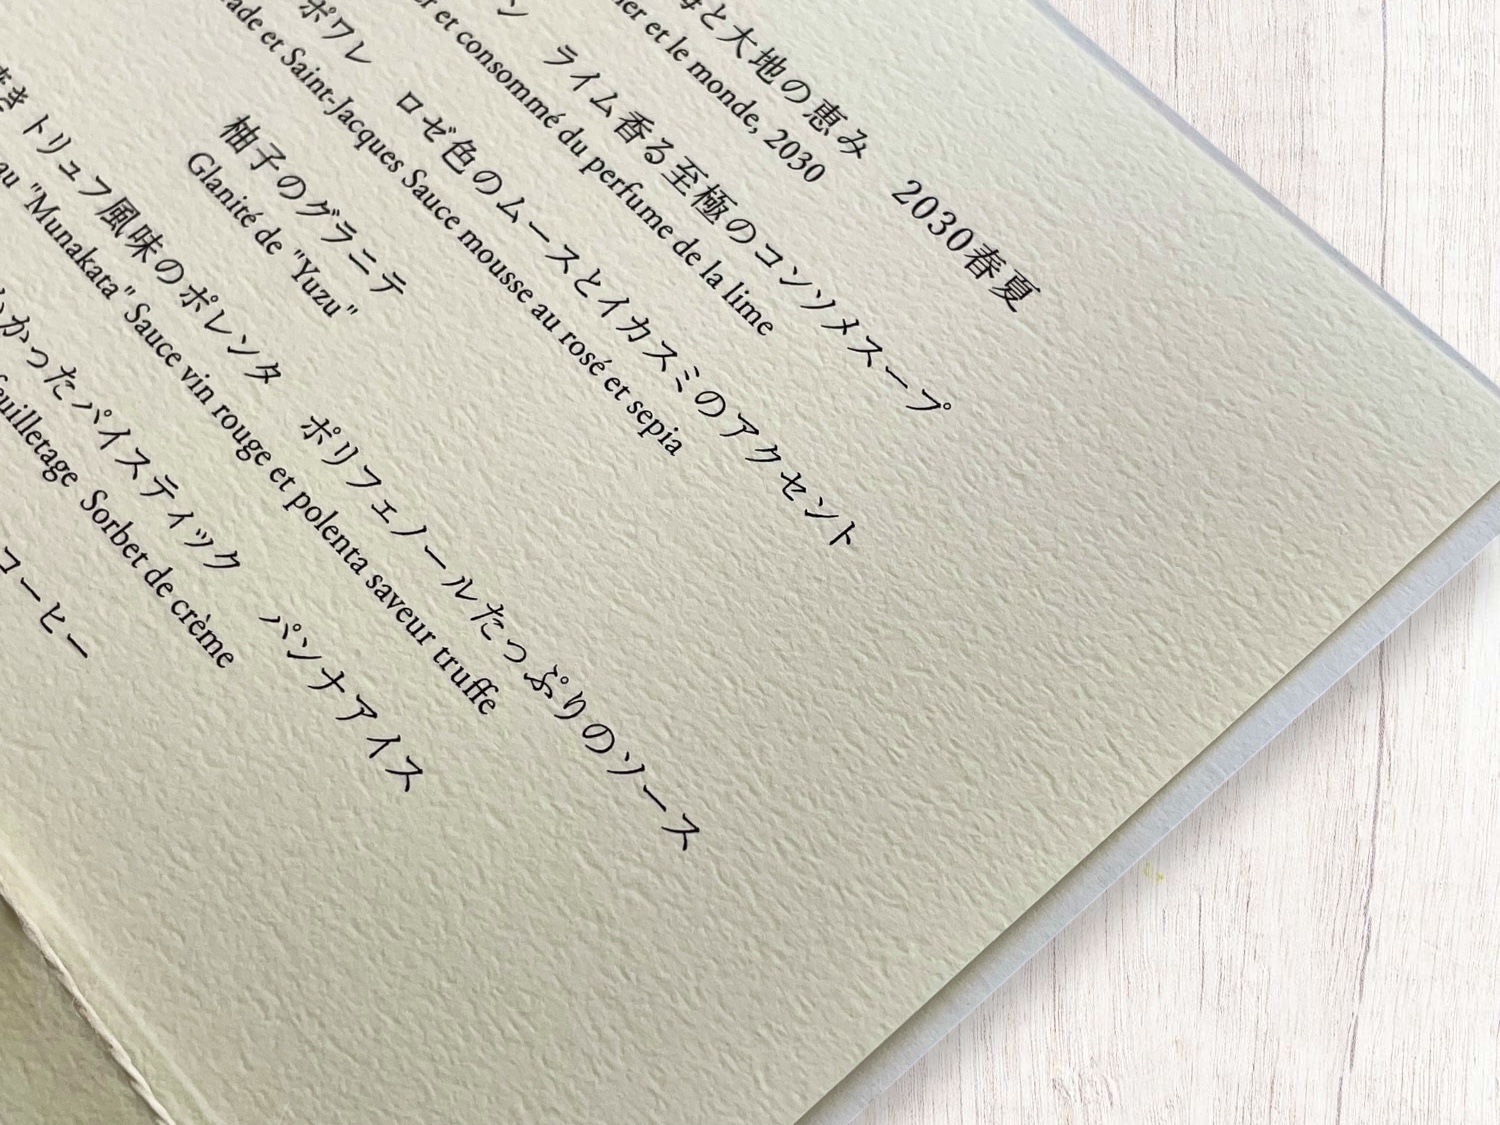 と大地の恵み　2030春夏
et le monde, 2030
ライム香る至極のコンソメスープ
et consommé du perfume de la lime
ポワレ　ロゼ色のムースとイカスミのアクセント
et Saint-Jacques Sauce mousse au rosé et sepia
柚子のグラニテ
Glanité de "Yuzu"
トリュフ風味のポレンタ　ポリフェノールたっぷりのソース
au "Munakata" Sauce vin rouge et polenta saveur truffe
かかったパイスティック　パンナアイス
feuilletage Sorbet de crème
コーヒー